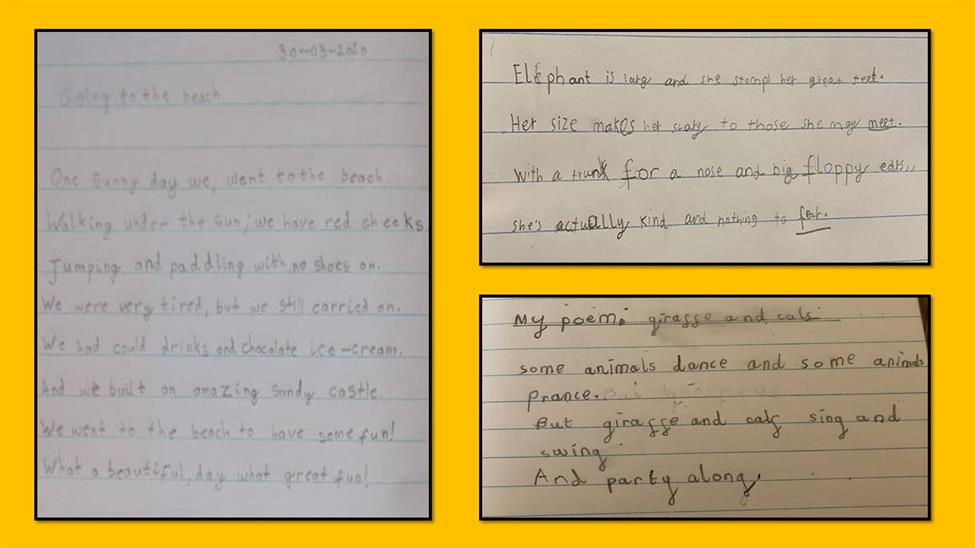 30-03-2020
Going to the beach
One sunny day we, went to the beach.
Walking under the sun; we have red cheeks
Jumping and paddling with no shoes on.
We were very tired, but we still carried on.
We had could drinks and chocolate ice-cream.
And we built an amazing sandy castle.
We went to the beach to have some fun!
What a beautiful, day what great fun!
Elephant is larg and she stomps her great feet.
Her size makes her scary to those she may meet.
With a trunk for a nose and big floppy ears,,
she's actually kind and nothing to fear.
My poem: giraffe and calf
some animals dance and some animals
prance.
But giraffe and calf sing and
swing
And party along.